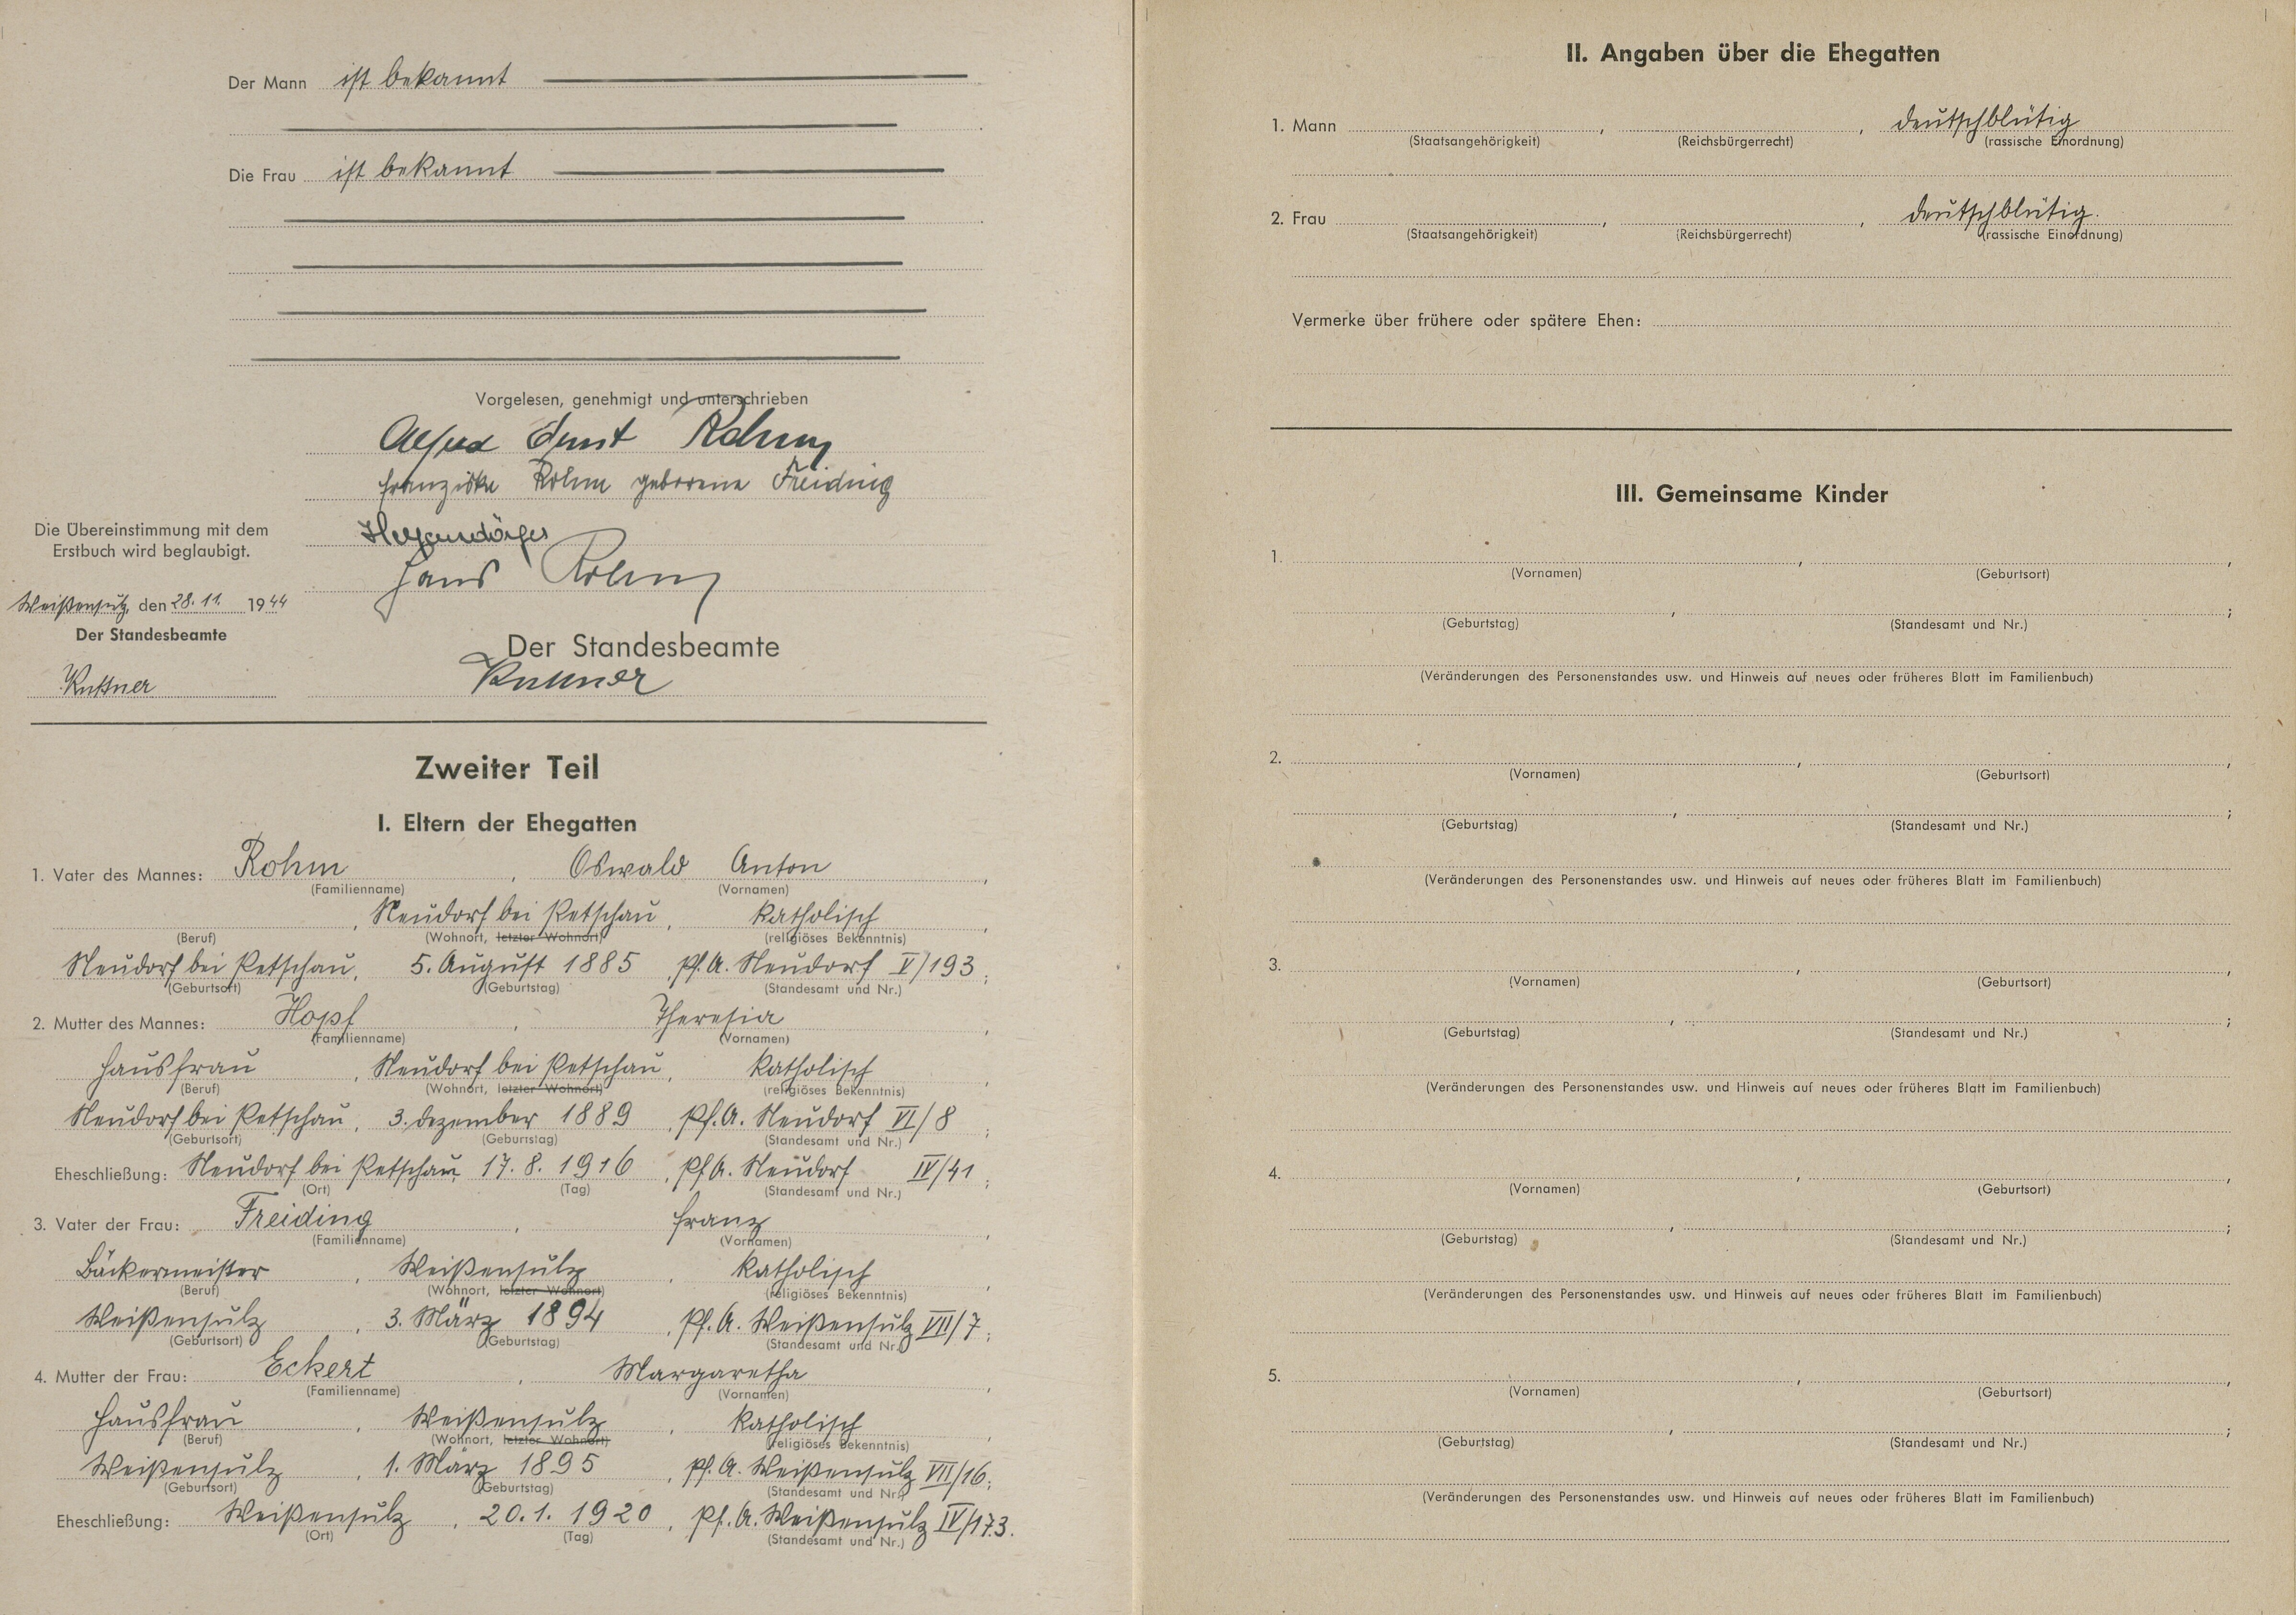 Der Mann ist bekannt
Die Frau ist bekannt
Vorgelesen, genehmigt und unterschrieben
Alfred Ernst Rohm
Franziska Rohm geborene Freiding
Hans Rohm
Die Übereinstimmung mit dem
Erstbuch wird beglaubigt.
Weißensulz, den 28. 11. 1944
Der Standesbeamte
Der Standesbeamte
Zweiter Teil
I. Eltern der Ehegatten
1. Vater des Mannes: Rohm, Oswald Anton,
(Familienname) (Vornamen)
, Neudorf bei Petschau, katholisch,
(Beruf) (Wohnort, letzter Wohnort) (religiöses Bekenntnis)
Neudorf bei Petschau, 5. August 1885, Pf. A. Neudorf V/193;
(Geburtsort) (Geburtstag) (Standesamt und Nr.)
2. Mutter des Mannes: Hopf, Theresia,
(Familienname) (Vornamen)
Hausfrau, Neudorf bei Petschau, katholisch,
(Beruf) (Wohnort, letzter Wohnort) (religiöses Bekenntnis)
Neudorf bei Petschau, 3. Dezember 1889, Pf. A. Neudorf VI/8;
(Geburtsort) (Geburtstag) (Standesamt und Nr.)
Eheschließung: Neudorf bei Petschau, 17. 8. 1916, Pf. A. Neudorf IV/41;
(Ort) (Tag) (Standesamt und Nr.)
3. Vater der Frau: Freiding, Franz,
(Familienname) (Vornamen)
Bäckermeister, Weißensulz, katholisch,
(Beruf) (Wohnort, letzter Wohnort) (religiöses Bekenntnis)
Weißensulz, 3. März 1894, Pf. A. Weißensulz VII/7;
(Geburtsort) (Geburtstag) (Standesamt und Nr.)
4. Mutter der Frau: Eckert, Margaretha,
(Familienname) (Vornamen)
Hausfrau, Weißensulz, katholisch,
(Beruf) (Wohnort, letzter Wohnort) (religiöses Bekenntnis)
Weißensulz, 1. März 1895, Pf. A. Weißensulz VII/16;
(Geburtsort) (Geburtstag) (Standesamt und Nr.)
Eheschließung: Weißensulz, 20. 1. 1920, Pf. A. Weißensulz IV/173.
(Ort) (Tag) (Standesamt und Nr.)
II. Angaben über die Ehegatten
1. Mann , , deutschblütig
(Staatsangehörigkeit) (Reichsbürgerrecht) (rassische Einordnung)
2. Frau , , deutschblütig.
(Staatsangehörigkeit) (Reichsbürgerrecht) (rassische Einordnung)
Vermerke über frühere oder spätere Ehen:
III. Gemeinsame Kinder
1. , ,
(Vornamen) (Geburtsort)
, ;
(Geburtstag) (Standesamt und Nr.)
(Veränderungen des Personenstandes usw. und Hinweis auf neues oder früheres Blatt im Familienbuch)
2. , ,
(Vornamen) (Geburtsort)
, ;
(Geburtstag) (Standesamt und Nr.)
(Veränderungen des Personenstandes usw. und Hinweis auf neues oder früheres Blatt im Familienbuch)
3. , ,
(Vornamen) (Geburtsort)
, ;
(Geburtstag) (Standesamt und Nr.)
(Veränderungen des Personenstandes usw. und Hinweis auf neues oder früheres Blatt im Familienbuch)
4. , ,
(Vornamen) (Geburtsort)
, ;
(Geburtstag) (Standesamt und Nr.)
(Veränderungen des Personenstandes usw. und Hinweis auf neues oder früheres Blatt im Familienbuch)
5. , ,
(Vornamen) (Geburtsort)
, ;
(Geburtstag) (Standesamt und Nr.)
(Veränderungen des Personenstandes usw. und Hinweis auf neues oder früheres Blatt im Familienbuch)